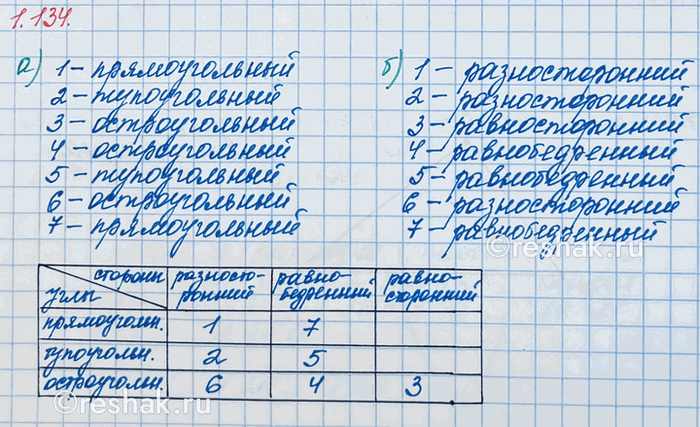 1.134.
а) 1 – прямоугольный
2 – тупоугольный
3 – остроугольный
4 – остроугольный
5 – тупоугольный
6 – остроугольный
7 – прямоугольный
б) 1 – разносторонний
2 – разносторонний
3 – равносторонний
4 – равнобедренный
5 – равнобедренный
6 – разносторонний
7 – равнобедренный
©reshak.ru
стороны разносто- равно- равно-
углы ронний бедренный сторонний
прямоугольн. 1 7
тупоугольн. 2 5
остроугольн. 6 4 3
©reshak.ru